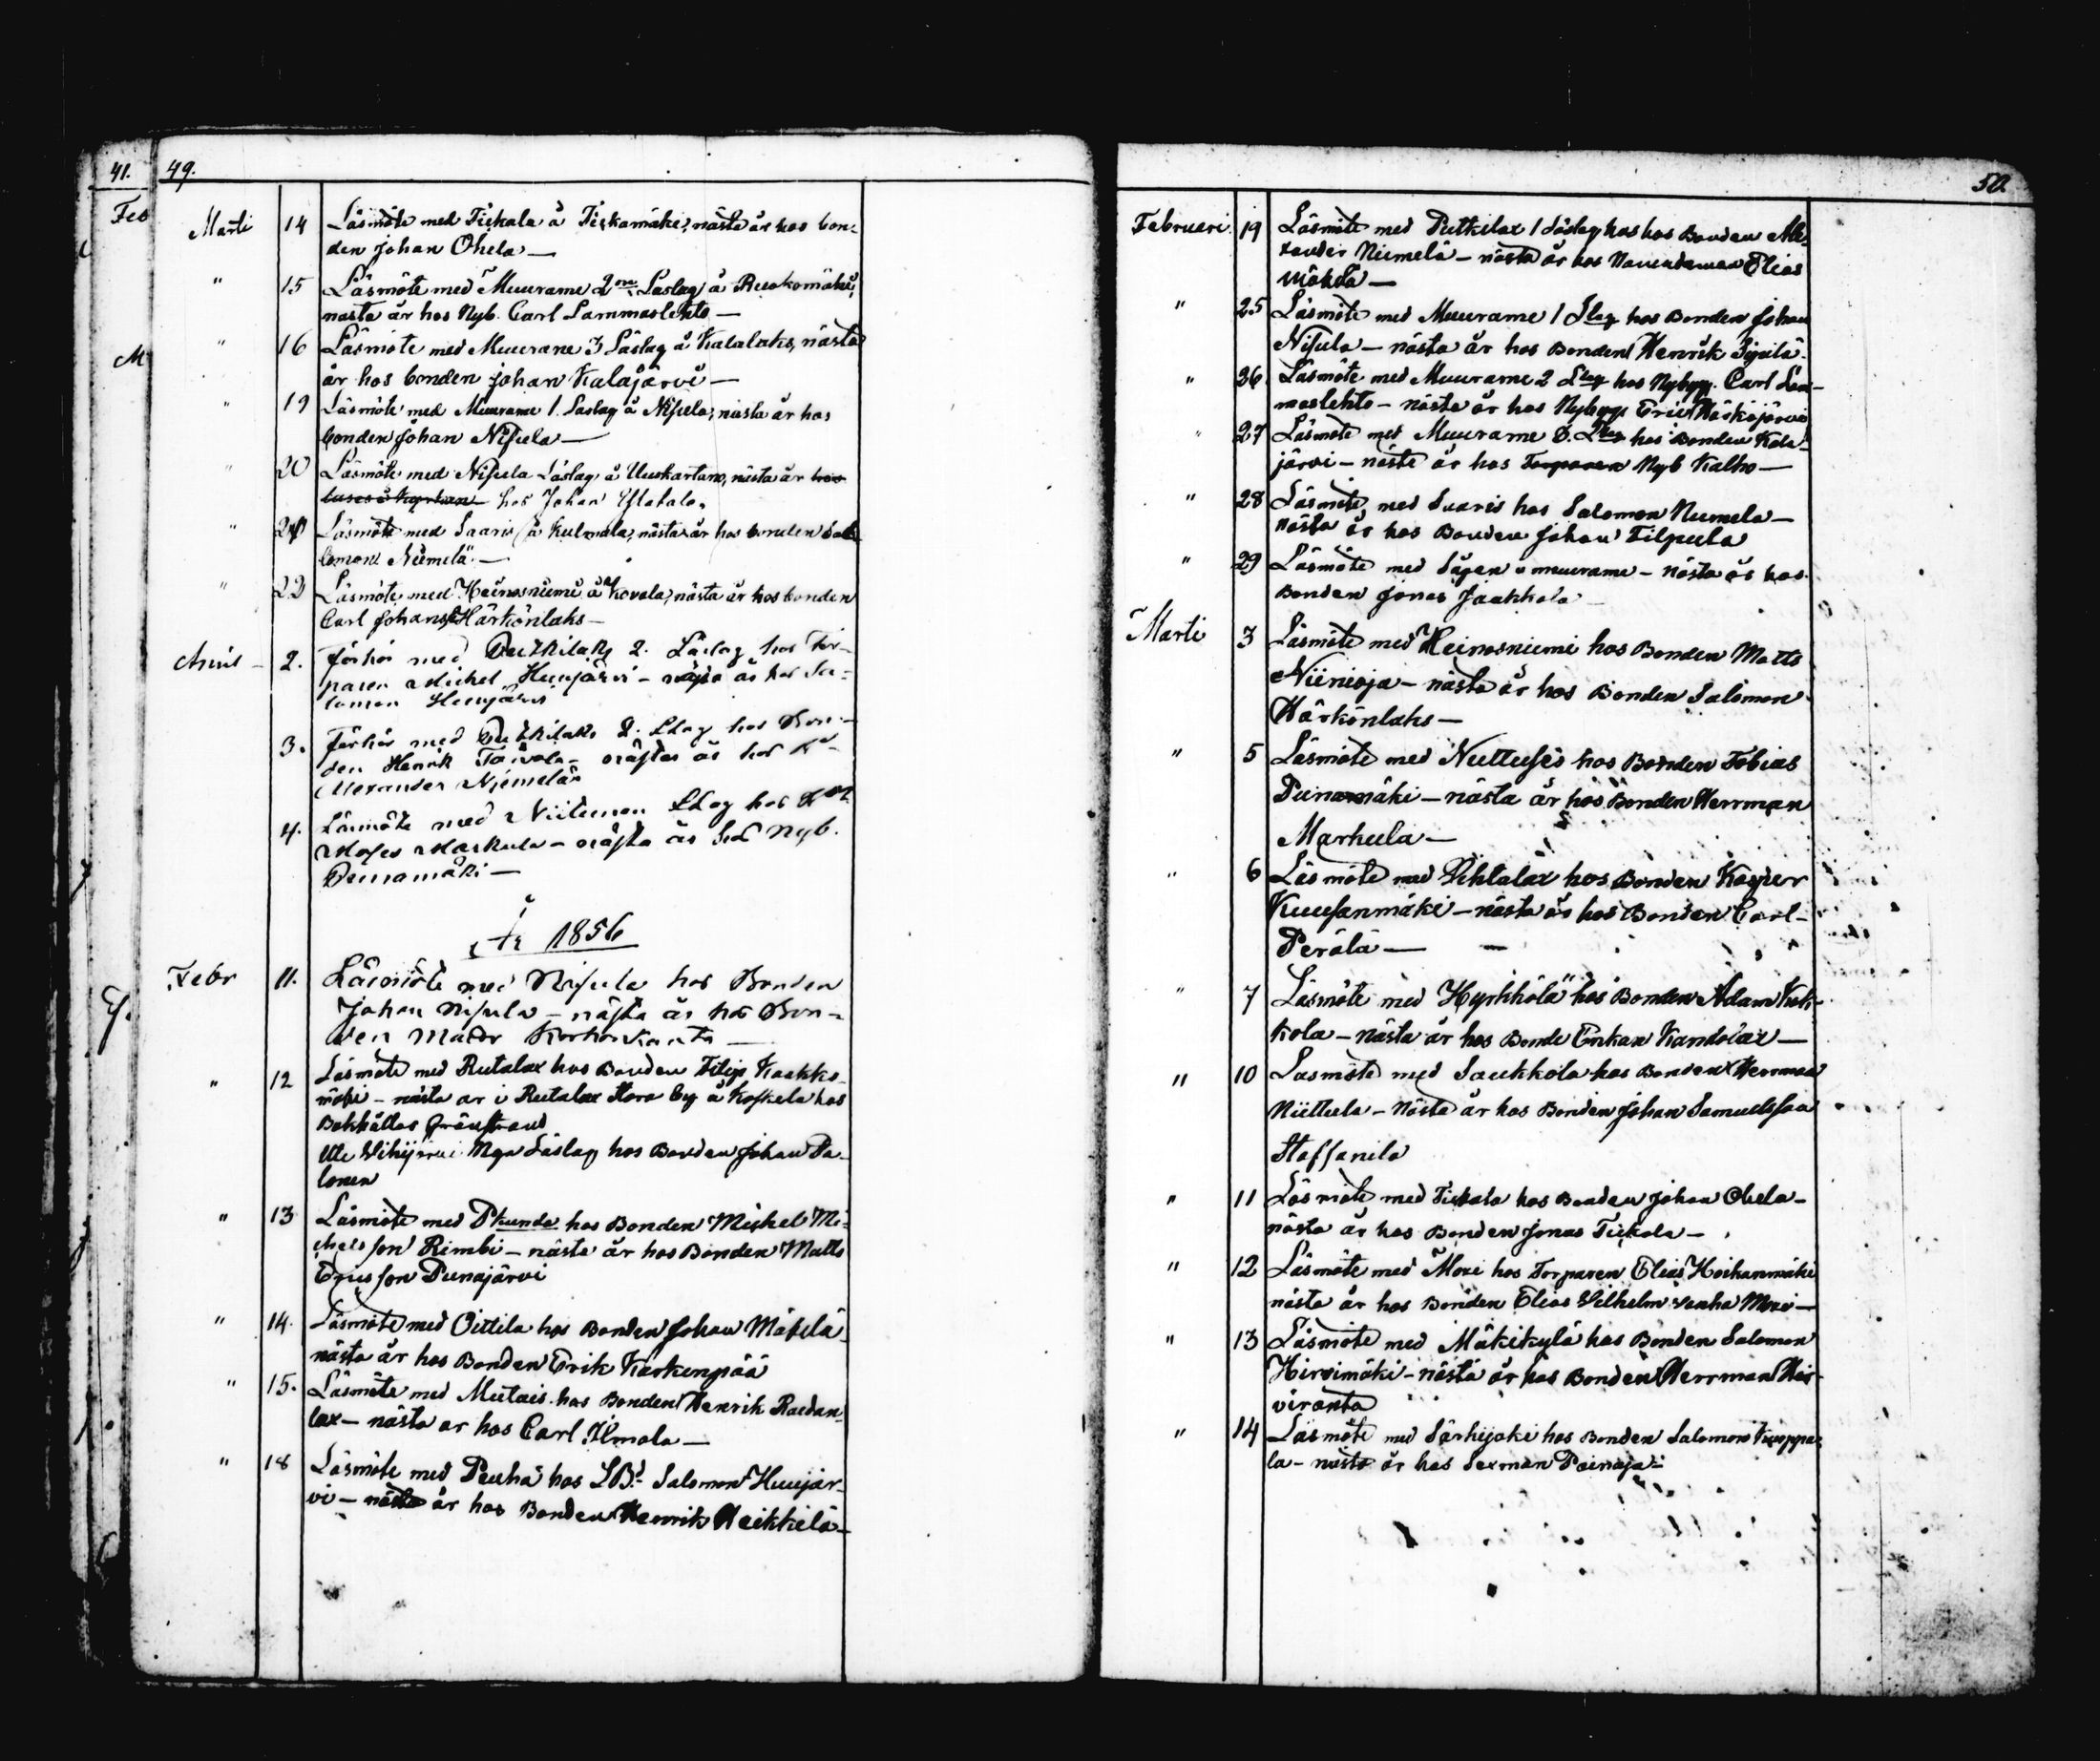 41. 49.
Feb
M
Marti 14 Läsmöte med Tickala å Tickamäki, nästa år hos bon-
den Johan Ohela —
" 15 Läsmöte med Muurame 2ra Läslag å Ruokomäki,
nästa år hos Nyb. Carl Lammaslehto —
" 16 Läsmöte med Muurane 3 Läslag å Kalalaks, nästa
år hos bonden Johan Kalajärvi —
" 19 Läsmöte med Muurame 1. Läslag å Nisula, nästa år hos
bonden Johan Nisula —
" 20 Läsmöte med Nisula Läslag å Uuskartano, nästa år
hos Johan Ylatalo.
" Läsmöte med Saaris å Kulmala, nästa år hos bonden Salo
lomon Niemelä. —
" 22 Läsmöte med Heinosniemi å Hovola, nästa år hos bonden
Carl Johans Härkönlaks —
April — 2. Förhör med Putkilaks 2. Läslag hos Tor-
paren Michel Huujärvi — nästa år hos Sa-
lomon Huujärvi
3. Förhör med Putkilaks 1. LLag hos Bon-
den Henrik Toivola — nästa år hos
Alexander Niemelä
4. Läsmöte med Niitunen LLag hos
Moses Markula — nästa år hos Nyb.
Punamäki —
År 1856
Febr 11. Läsmöte med Nisula hos Bonden
Johan Nisula — nästa år hos Bon-
den Mats Korhoskanta —
" 12 Läsmöte med Rutalax hos Bonden Filip Kaakko-
mäki — nästa ar i Rutalax Stora by å Koskela hos
Bokhållar Grönstrand
Ule Vihijärvi Mgn Läslag hos Bonden Johan Pa-
lonen
" 13 Läsmöte med Pkunda hos Bonden Mickel Mi-
chelsson Rimbi — nästa år hos Bonden Matts
Ericsson Punajärvi
" 14. Läsmöte med Oittila hos Bonden Johan Mäkelä
nästa år hos Bonden Erik Karkenpää
" 15. Läsmöte med Mutais hos Bonden Henrik Raudan-
lax — nästa ar hos Carl Ilmola —
" 18 Läsmöte med Pauha hos LBd Salomon Huujär-
vi — nästa år hos Bonden Henrik Heikkilä —
50.
Februari 19 Läsmöte med Putkilax 1 Läslag hos hos Bonden Ale-
xander Niemelä — nästa år hos Elias
Mökölä —
" 25 Läsmöte med Muurame 1 Llag hos Bonden Johan
Nisula — nästa år hos Bonden Henrik Sipilä.
" 26 Läsmöte med Muurame 2 Llag hos Nybygg. Carl Lam-
maslehto — nästa år hos Nybygg Eric Hörköjärvi
" 27 Läsmöte med Muurame 3. Llag hos Bonden Kala-
järvi — nästa år hos Torparen Nyb Kalho —
" 28 Läsmöte med Saaris hos Salomon Niemela —
Nästa år hos Bonden Johan Tilpula
" 29 Läsmöte med Sågen i muurame — Nästa år hos
Bonden Jonas Jaakkola
Marti 3 Läsmöte med Heinosniemi hos Bonden Matts
Niinioja — nästa år hos Bonden Salomon
Härkönlaks —
" 5 Läsmöte med Nuttusis hos Bonden Tobias
Punamäki — nästa år hos Bonden Herrman
Markula —
" 6 Läsmöte med Vihtalax hos Bonden Kasper
Kuusanmäki — nästa år hos Bonden Carl
Perälä —
" 7 Läsmöte med Hyrkkölä hos Bonden Adam Kuk-
kola — nästa är hos Bonde Enkan Kandolax —
" 10 Lasmöte med Saukkola hos Bonden Herrman
Niittula — Nästa är hos Bonden Johan Samuelsson
Staffanila
" 11 Läsmöte med Tickala hos Bonden Johan Ohela —
nästa år hos Bonden Jonas Tickala —
" 12 Läsmöte med Moxi hos Torparen Elias Hoikanmäki
nästa år hos Bonden Elias Vilhelm vanha Moxi —
" 13 Läsmöte med Mäkikylä hos Bonden Salomon
Hirvimäki — nästa år hos Bonden Herrman Hir-
viranta
" 14 Läsmöte med Särkijoki hos Bonden Salomon Kuoppa-
la — nästa är hos Sexman